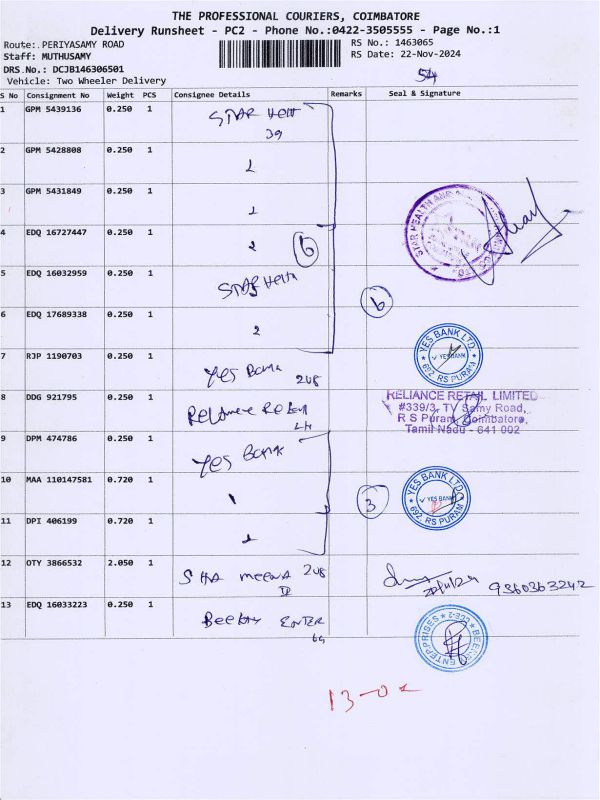 THE PROFESSIONAL COURIERS, COIMBATORE
Delivery Runsheet - PC2 - Phone No.:0422-3505555 - Page No.:1
Route:.PERIYASAMY ROAD
RS No.: 1463065
Staff: MUTHUSAMY
RS Date: 22-Nov-2024
DRS No.: DCJB146306501
54
Vehicle: Two Wheeler Delivery
S No Consignment No Weight PCS Consignee Details Remarks Seal & Signature
1 GPM 5439136 0.250 1 STAR Helt
39
2 GPM 5428808 0.250 1
3 GPM 5431849 0.250 1
STAR HEALTH AND
4 EDQ 16727447 0.250 1 2 6
5 EDQ 16032959 0.250 1 STAR Helth
6
6 EDQ 17689338 0.250 1 2
YES BANK LTD.
YES BANK
692, RS PURAM
7 RJP 1190703 0.250 1 Yes Bank 208
8 DDG 921795 0.250 1 Reliance Retail
RELIANCE RETAIL LIMITED
#339/3, TV Samy Road,
R S Puram, Coimbatore,
Tamil Nadu - 641 002
9 DPM 474786 0.250 1 Yes Bank
10 MAA 110147581 0.720 1
3
YES BANK LTD.
YES BANK
692, RS PURAM
11 DPI 406199 0.720 1
12 OTY 3866532 2.050 1 SHA meena 208
9360363242
13 EDQ 16033223 0.250 1 Beekay ENTER
ENTERPRISES
CBE-2
13-02